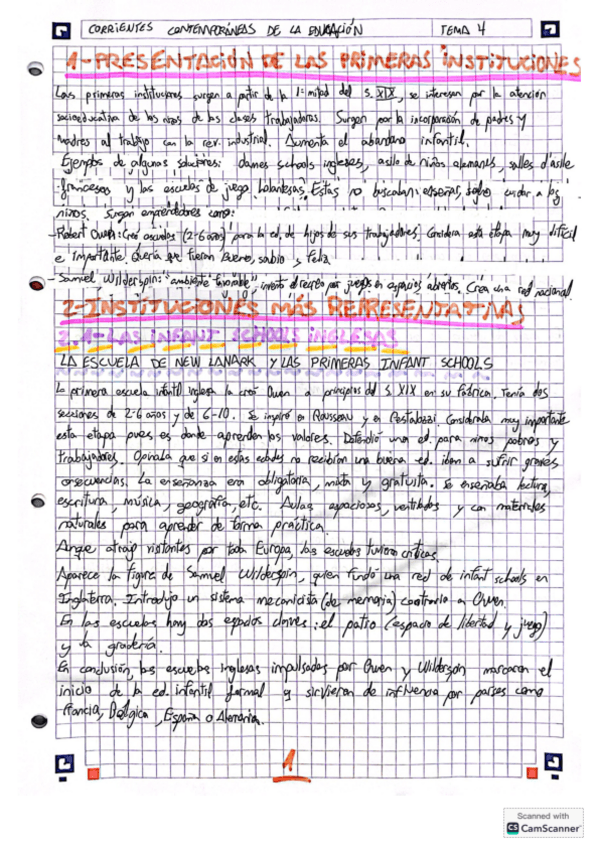 CORRIENTES CONTEMPORÁNEAS DE LA EDUCACIÓN TEMA 4
1-PRESENTACIÓN DE LAS PRIMERAS INSTITUCIONES
Las primeras instituciones surgen a partir de la 1ª mitad del S. XIX, se interesan por la atención
socioeducativa de los niños de las clases trabajadoras. Surgen por la incorporación de padres y
madres al trabajo con la rev. industrial. Aumenta el abandono infantil.
Ejemplos de algunas soluciones: dames schools inglesas, asilo de niños alemanes, salles d'asile
francesas y las escuelas de juego holandesas. Estas no buscaban enseñar, sino cuidar a los
niños. Surgen emprendedores como:
-Robert Owen: Creó escuelas (2-6 años) para la ed. de hijos de sus trabajadores. Considera esta etapa muy difícil
e importante. Quería que fueran bueno, sabio y feliz.
-Samuel Wilderspin: "ambiente favorable", inventó el recreo por juegos en espacios abiertos. Crea una red nacional.
2-INSTITUCIONES MÁS REPRESENTATIVAS
2.1-LAS INFANT SCHOOLS INGLESAS
LA ESCUELA DE NEW LANARK Y LAS PRIMERAS INFANT SCHOOLS
La primera escuela infantil inglesa la creó Owen a principios del S. XIX en su fábrica. Tenía dos
secciones de 2-6 años y de 6-10. Se inspiró en Rousseau y en Pestalozzi. Consideraba muy importante
esta etapa pues es donde aprenden los valores. Defendió una ed. para niños pobres y
trabajadores. Opinaba que si en estas edades no recibían una buena ed. iban a sufrir graves
consecuencias. La enseñanza era obligatoria, mixta y gratuita. Se enseñaba lectura,
escritura, música, geografía, etc. Aulas espaciosas, ventiladas y con materiales
naturales para aprender de forma práctica.
Anque atrajo visitantes por toda Europa, las escuelas tuvieron críticas.
Aparece la figura de Samuel Wilderspin, quien fundó una red de infant schools en
Inglaterra. Introdujo un sistema mecanicista (de memoria) contrario a Owen.
En las escuelas hay dos espacios claves: el patio (espacio de libertad y juego)
y la gradería.
En conclusión, las escuelas inglesas impulsadas por Owen y Wilderspin marcaron el
inicio de la ed. infantil formal y sirvieron de influencia por países como
Francia, Bélgica, España o Alemania.
1
Scanned with
CS CamScanner